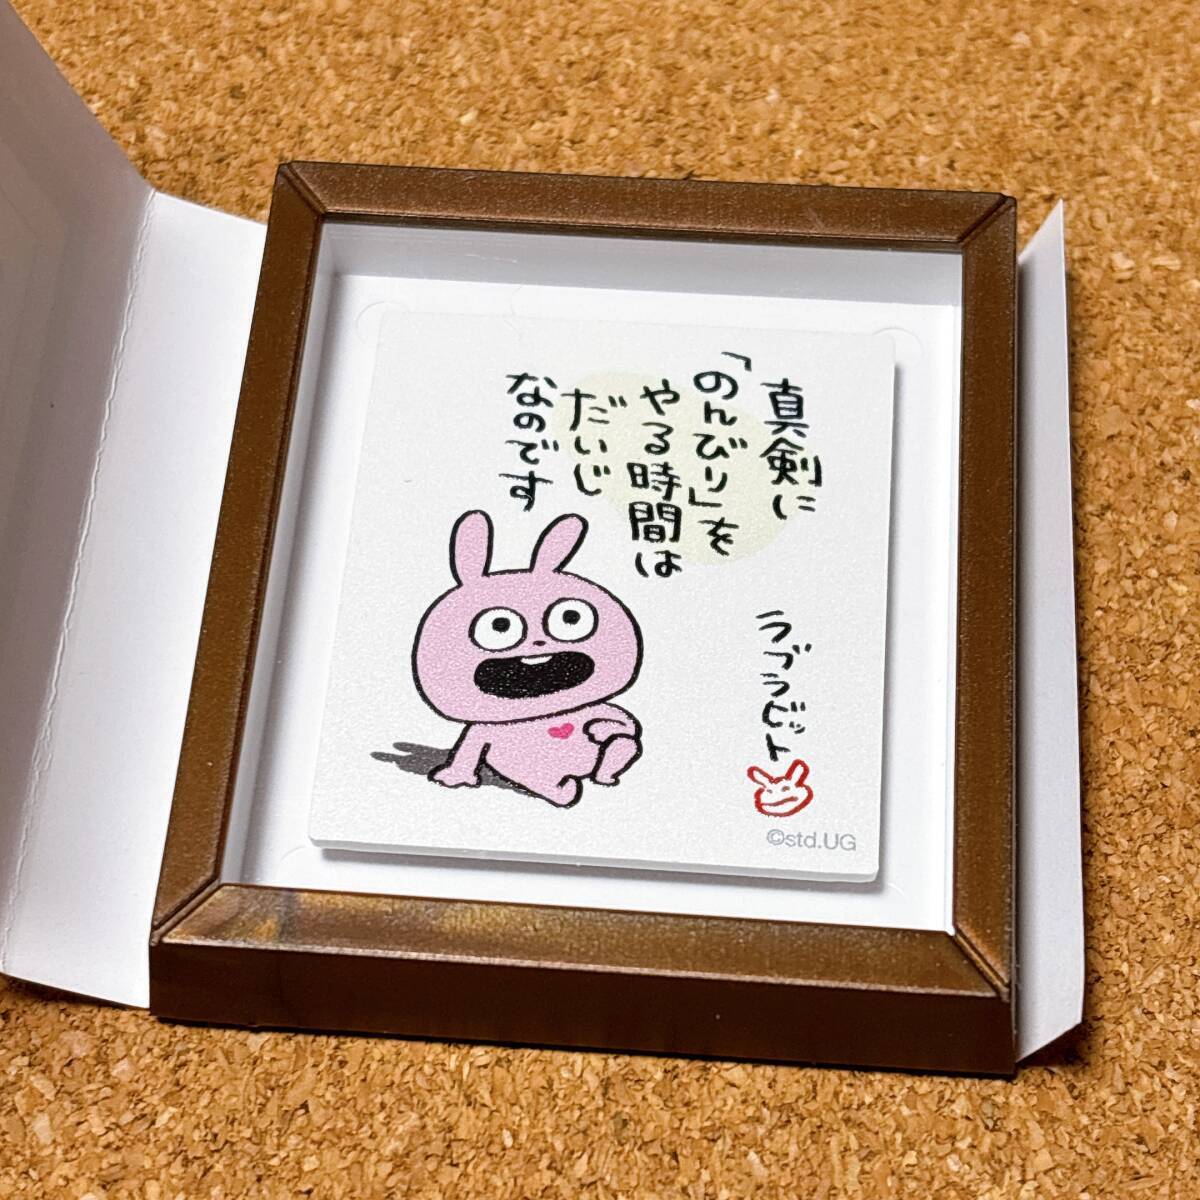 真剣に
「のんびり」を
やる時間は
だいじ
なのです
ラブラビット
©std.UG